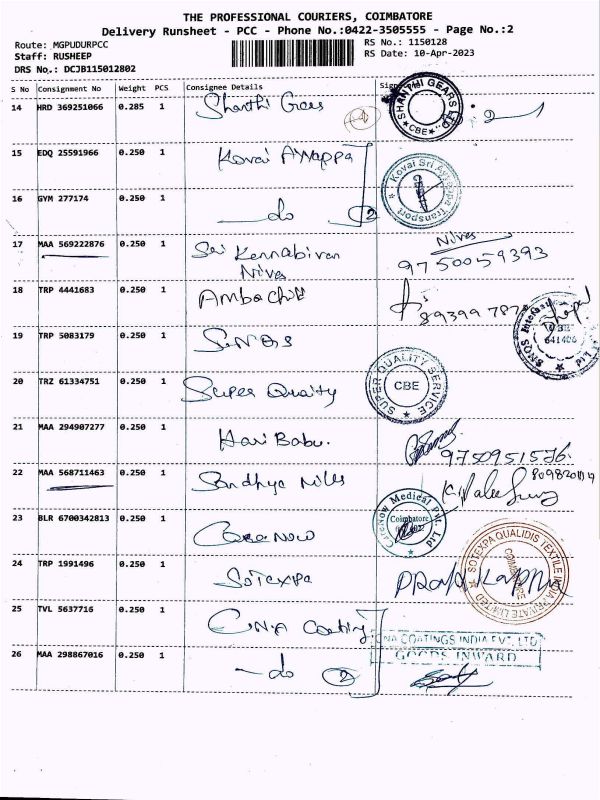 THE PROFESSIONAL COURIERS, COIMBATORE
Delivery Runsheet - PCC - Phone No.:0422-3505555 - Page No.:2
Route: MGPUDURPCC
RS No.: 1150128
Staff: RUSHEEP
RS Date: 10-Apr-2023
DRS No.: DCJB115012802
S No Consignment No Weight PCS Consignee Details Sign
14 HRD 369251066 0.285 1 Shanthi Gears
SHANTHI GEARS LTD CBE
15 EDQ 25591966 0.250 1 Kovai Ayyappa
Kovai Sri Ayyappa Transport
16 GYM 277174 0.250 1 do 2
17 MAA 569222876 0.250 1 Sri Kannabiran
Nivas
Nivas
9750059393
18 TRP 4441683 0.250 1 Ambachit
89399 787
19 TRP 5083179 0.250 1 SNQS
SNQS
641406
20 TRZ 61334751 0.250 1 Super Quality
SUPER QUALITY SERVICE CBE
21 MAA 294907277 0.250 1 Hari Babu.
22 MAA 568711463 0.250 1 Sandhya Mills
23 BLR 6700342813 0.250 1 CareNow
CareNow Medical Pvt. Coimbatore
24 TRP 1991496 0.250 1 Sotexpa
SOTEXPA QUALIDIS TEXTILE INDIA PRIVATE LIMITED COIMBATORE
25 TVL 5637716 0.250 1 CNA Coating
CNA COATINGS INDIA PVT. LTD
GOODS INWARD
26 MAA 298867016 0.250 1 do 2